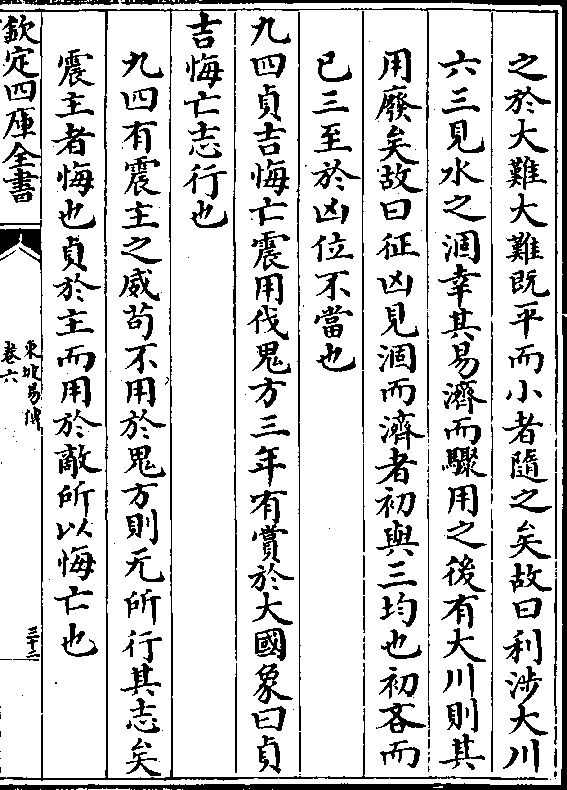 之於大難大難既平而小者隨之矣故曰利涉大川
六三見水之涸幸其易濟而驟用之後有大川則其
用廢矣故曰征凶見涸而濟者初與三均也初吝而
已三至於凶位不當也
九四貞吉悔亡震用伐鬼方三年有賞於大國象曰貞
吉悔亡志行也
九四有震主之威苟不用於鬼方則无所行其志矣
震主者悔也貞於主而用於敵所以悔亡也
欽定四庫全書
東坡易傳
卷六
三十二